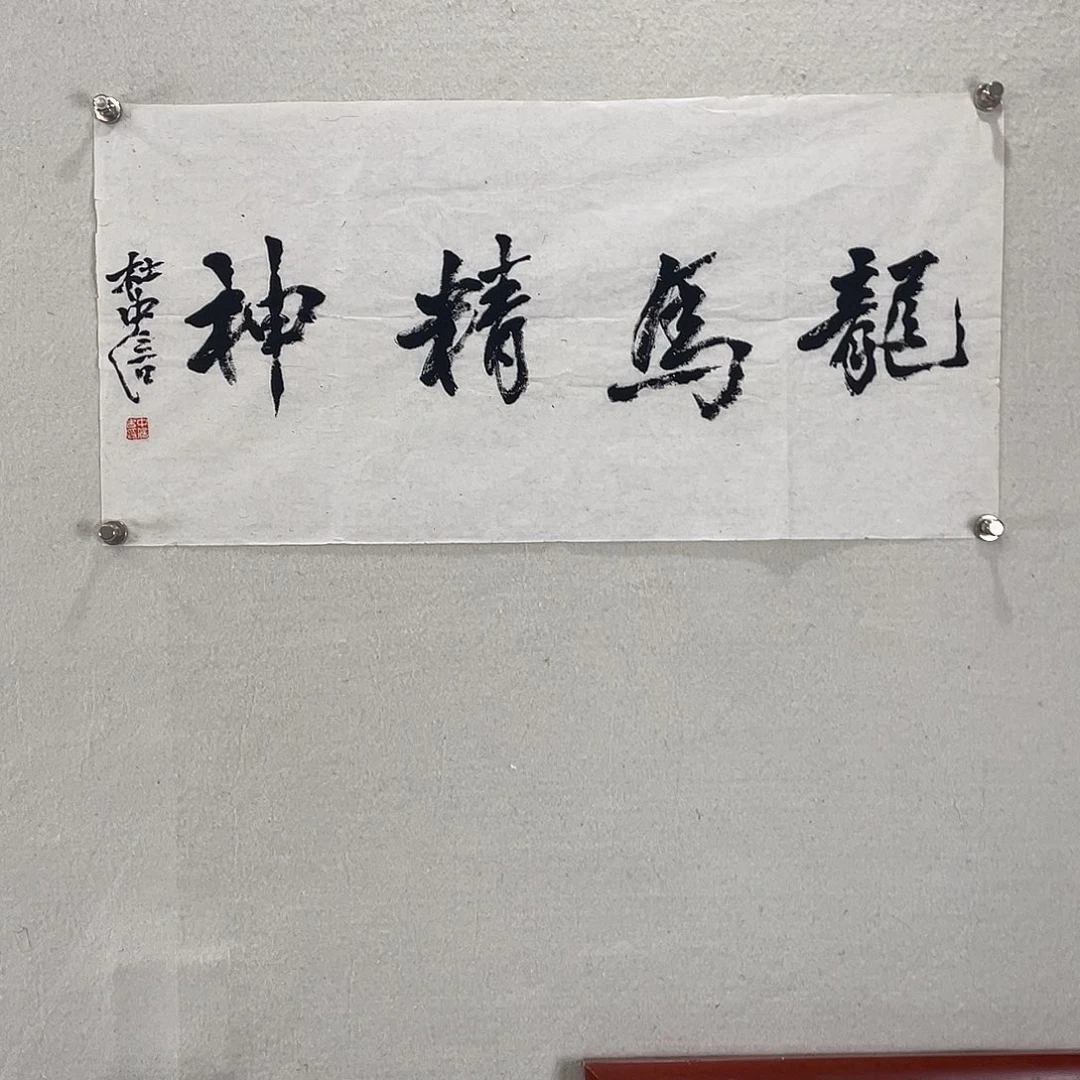 龍馬精神
杜中信